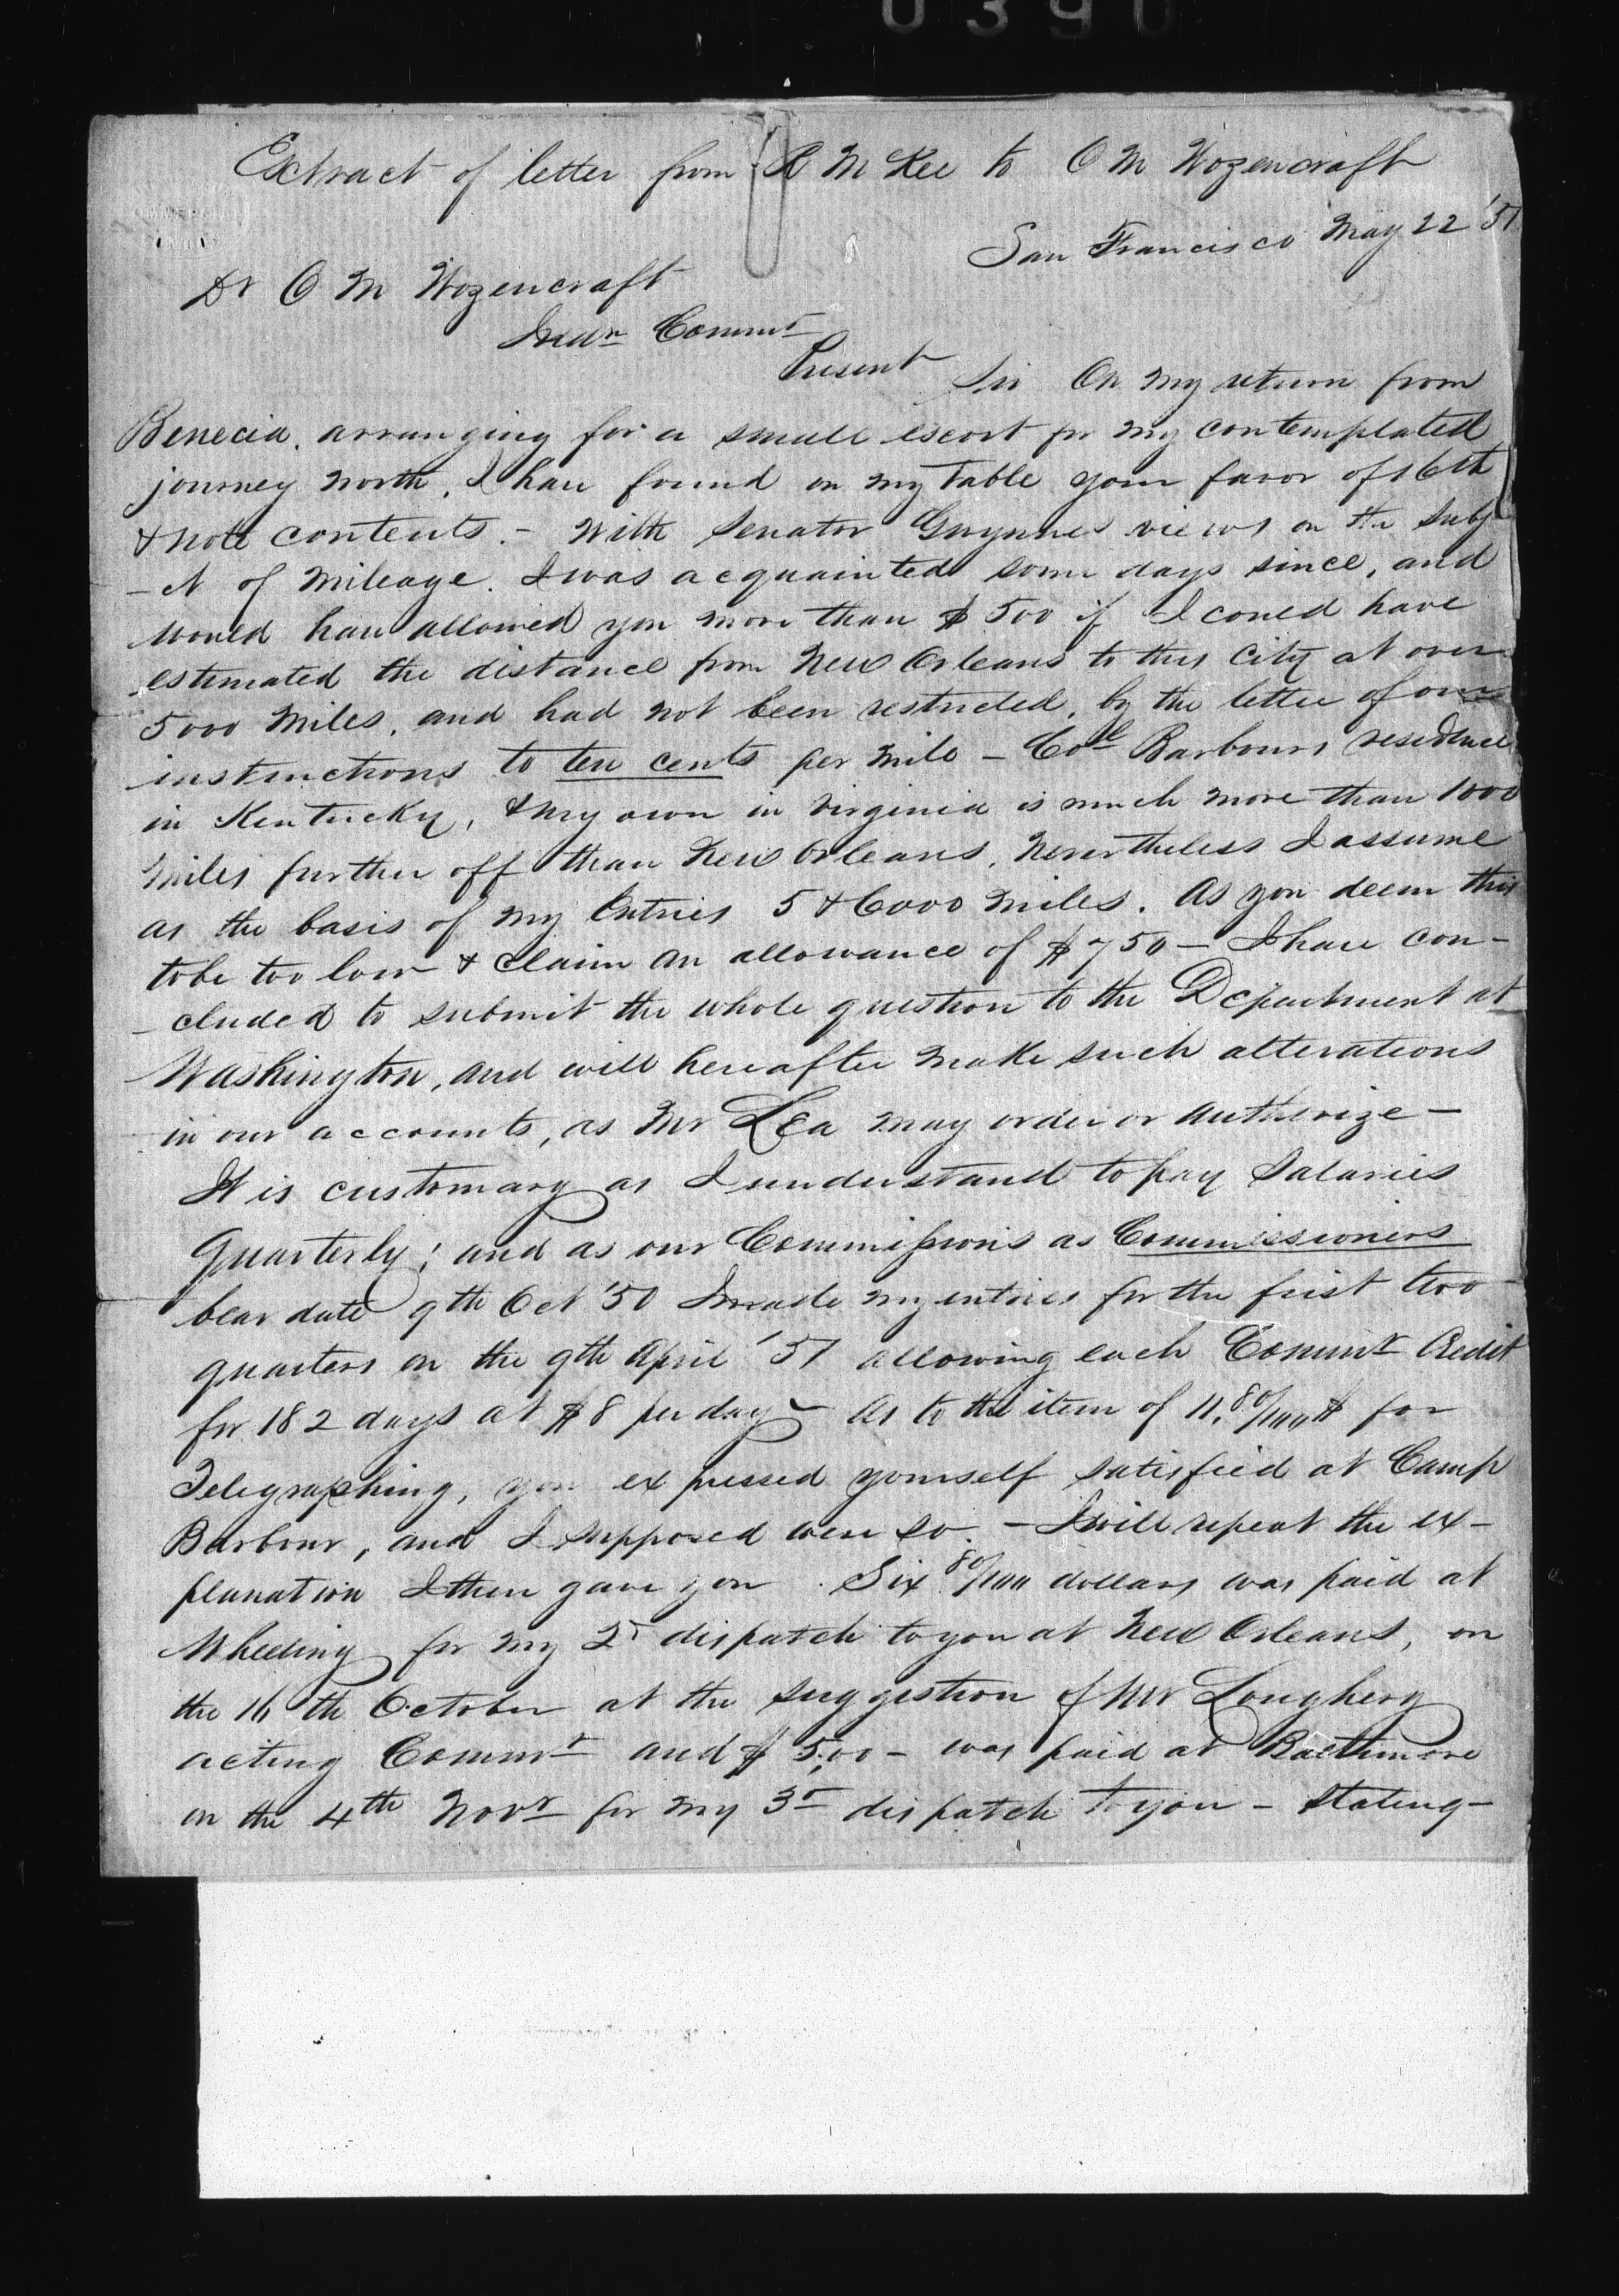 0390
Extract of letter from R McKee to O M Wozencraft
San Francisco May 22 '51
Dr O M Wozencraft
Indn Commr
Present
Sir On my return from
Benecia, arranging for a small escort for my contemplated
journey north, I have found on my table your favor of 16th
& note contents. - With Senator Gwynnes views on the subj
-ct of mileage. I was acquainted some days since, and
would have allowed you more than $500 if I could have
estimated the distance from New Orleans to this City at over
5000 miles, and had not been restricted, by the letter of our
instructions to ten cents per mile - Col Barbours residence
in Kentucky, & my own in Virginia is much more than 1000
miles further off than New Orleans, nevertheless I assume
as the basis of my Entries 5 & 6000 miles. As you deem this
to be too low & claim an allowance of $750 - I have con-
-cluded to submit the whole question to the Department at
Washington, and will hereafter make such alterations
in our accounts, as Mr Lea may order or authorize -
It is customary as I understand to pay Salaries
Quarterly; and as our Commissions as Commissioners
bear date 9th Oct '50 I made my entries for the first two
quarters on the 9th April '51 allowing each Commr Credit
for 182 days at $8 per day - As to the item of 11.80/100$ for
Telegraphing, you expressed yourself satisfied at Camp
Barbour, and I supposed were so. - I will repeat the ex-
planation I then gave you. Six 80/100 dollars was paid at
Wheeling for my 2d dispatch to you at New Orleans, on
the 16th October at the suggestion of Mr Loughery
acting Commr and $5.00 - was paid at Balthimore
on the 4th Novr for my 3d dispatch to you - stating -